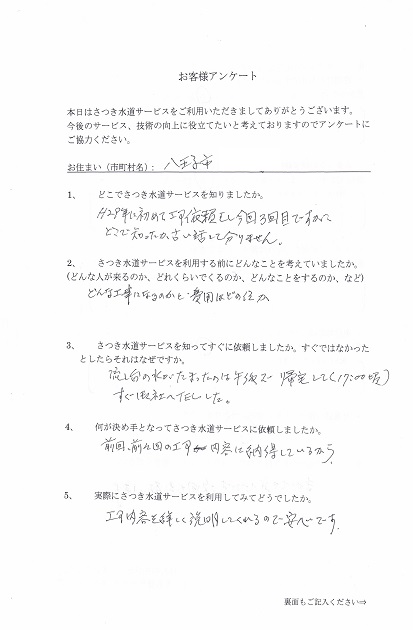 お客様アンケート
本日はさつき水道サービスをご利用いただきましてありがとうございます。
今後のサービス、技術の向上に役立てたいと考えておりますのでアンケートに
ご協力ください。
お住まい（市町村名）： 八王子市
1、 どこでさつき水道サービスを知りましたか。
H29年に初めて工事依頼をし今回3回目ですから
どこで知ったか古い話しで分りません。
2、 さつき水道サービスを利用する前にどんなことを考えていましたか。
（どんな人が来るのか、どれくらいでくるのか、どんなことをするのか、など）
どんな工事になるのかと費用はどの位か
3、 さつき水道サービスを知ってすぐに依頼しましたか。すぐではなかった
としたらそれはなぜですか。
流し台の水がたまったのは午後で 帰宅して（17:00頃）
すぐ御社へTELした。
4、 何が決め手となってさつき水道サービスに依頼しましたか。
前回、前々回の工事 内容に納得しているから
5、 実際にさつき水道サービスを利用してみてどうでしたか。
工事内容を詳しく説明してくれるので安心です。
裏面もご記入ください⇒